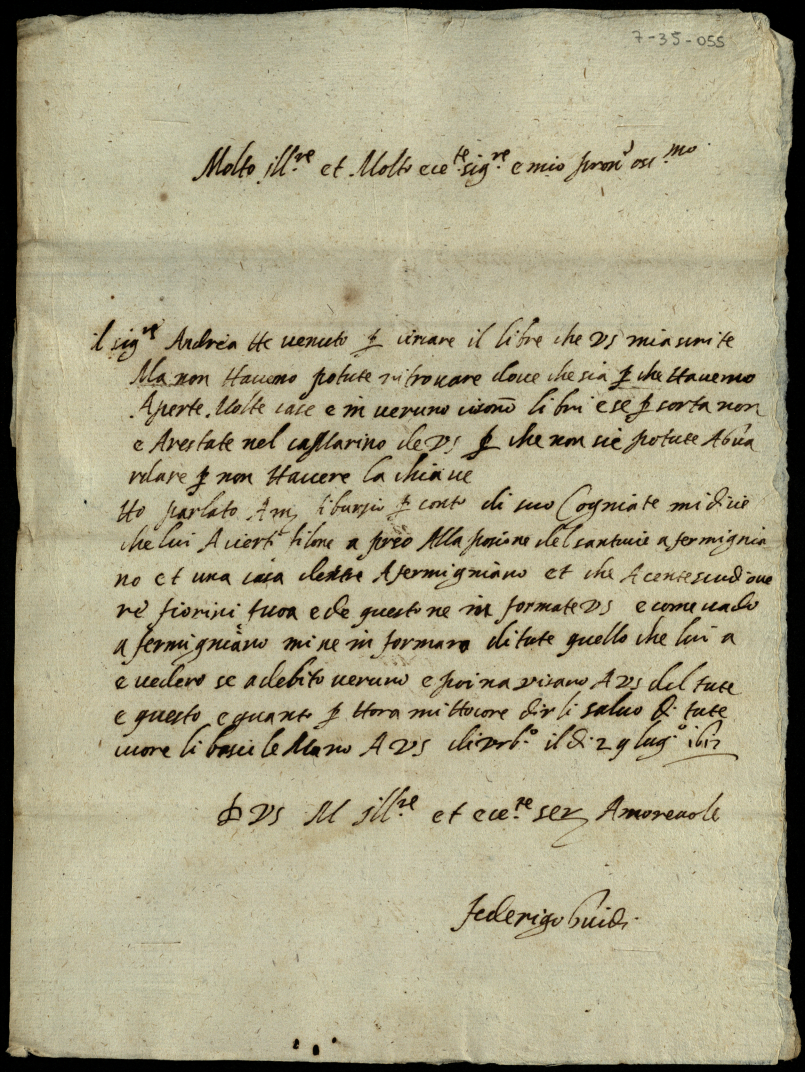 7-35-055
Molto ill.re et Molto ece.te sig.re e mio pron' oss.mo
il sig.re Andrea He venuto p circare il libre che VS mia scrite
Ma non Haveno potute ritrovare dove che sia p che Haverno
Aperte Molte case e in veruno libri e se p sorta non
e Arestate nel de VS p che non sie potute AGua
rdare p non Havere la chiave
Ho parlato A liburzio p conto di suo Cogniate mi dicie
che lui A a preo Alla posione del a fermignia
no et una casa dentre A fermigniano et che A cente scudi
re fiorini fuora e de questo ne in formate VS e come vado
a fermigniano mi ne in formaro di tute quello che lui a
e vedero se a debito veruno e poi na visaro A VS del tute
e questo e quanto p Hora mi Hocore dirli salvo di tute
cuore li bascie le Mano A VS di urb.o il di 29 lug.o 1612
D VS M ill.re et ece.te ser Amorevole
federigo Guidi